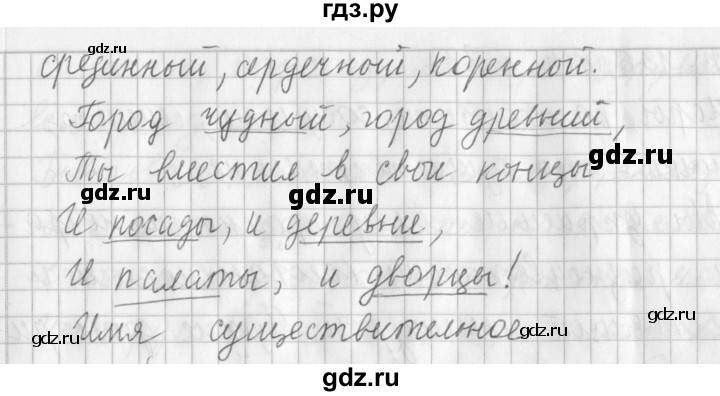 гдз.ру
gdz.ru
срединный, сердечный, коренной.
Город чудный, город древний,
gdz.ru
Ты вместил в свои концы
gdz.ru
gdz.ru
И посады, и деревни,
И палаты, и дворцы!
gdz.ru
Имя существительное
gdz.ru
gdz.ru